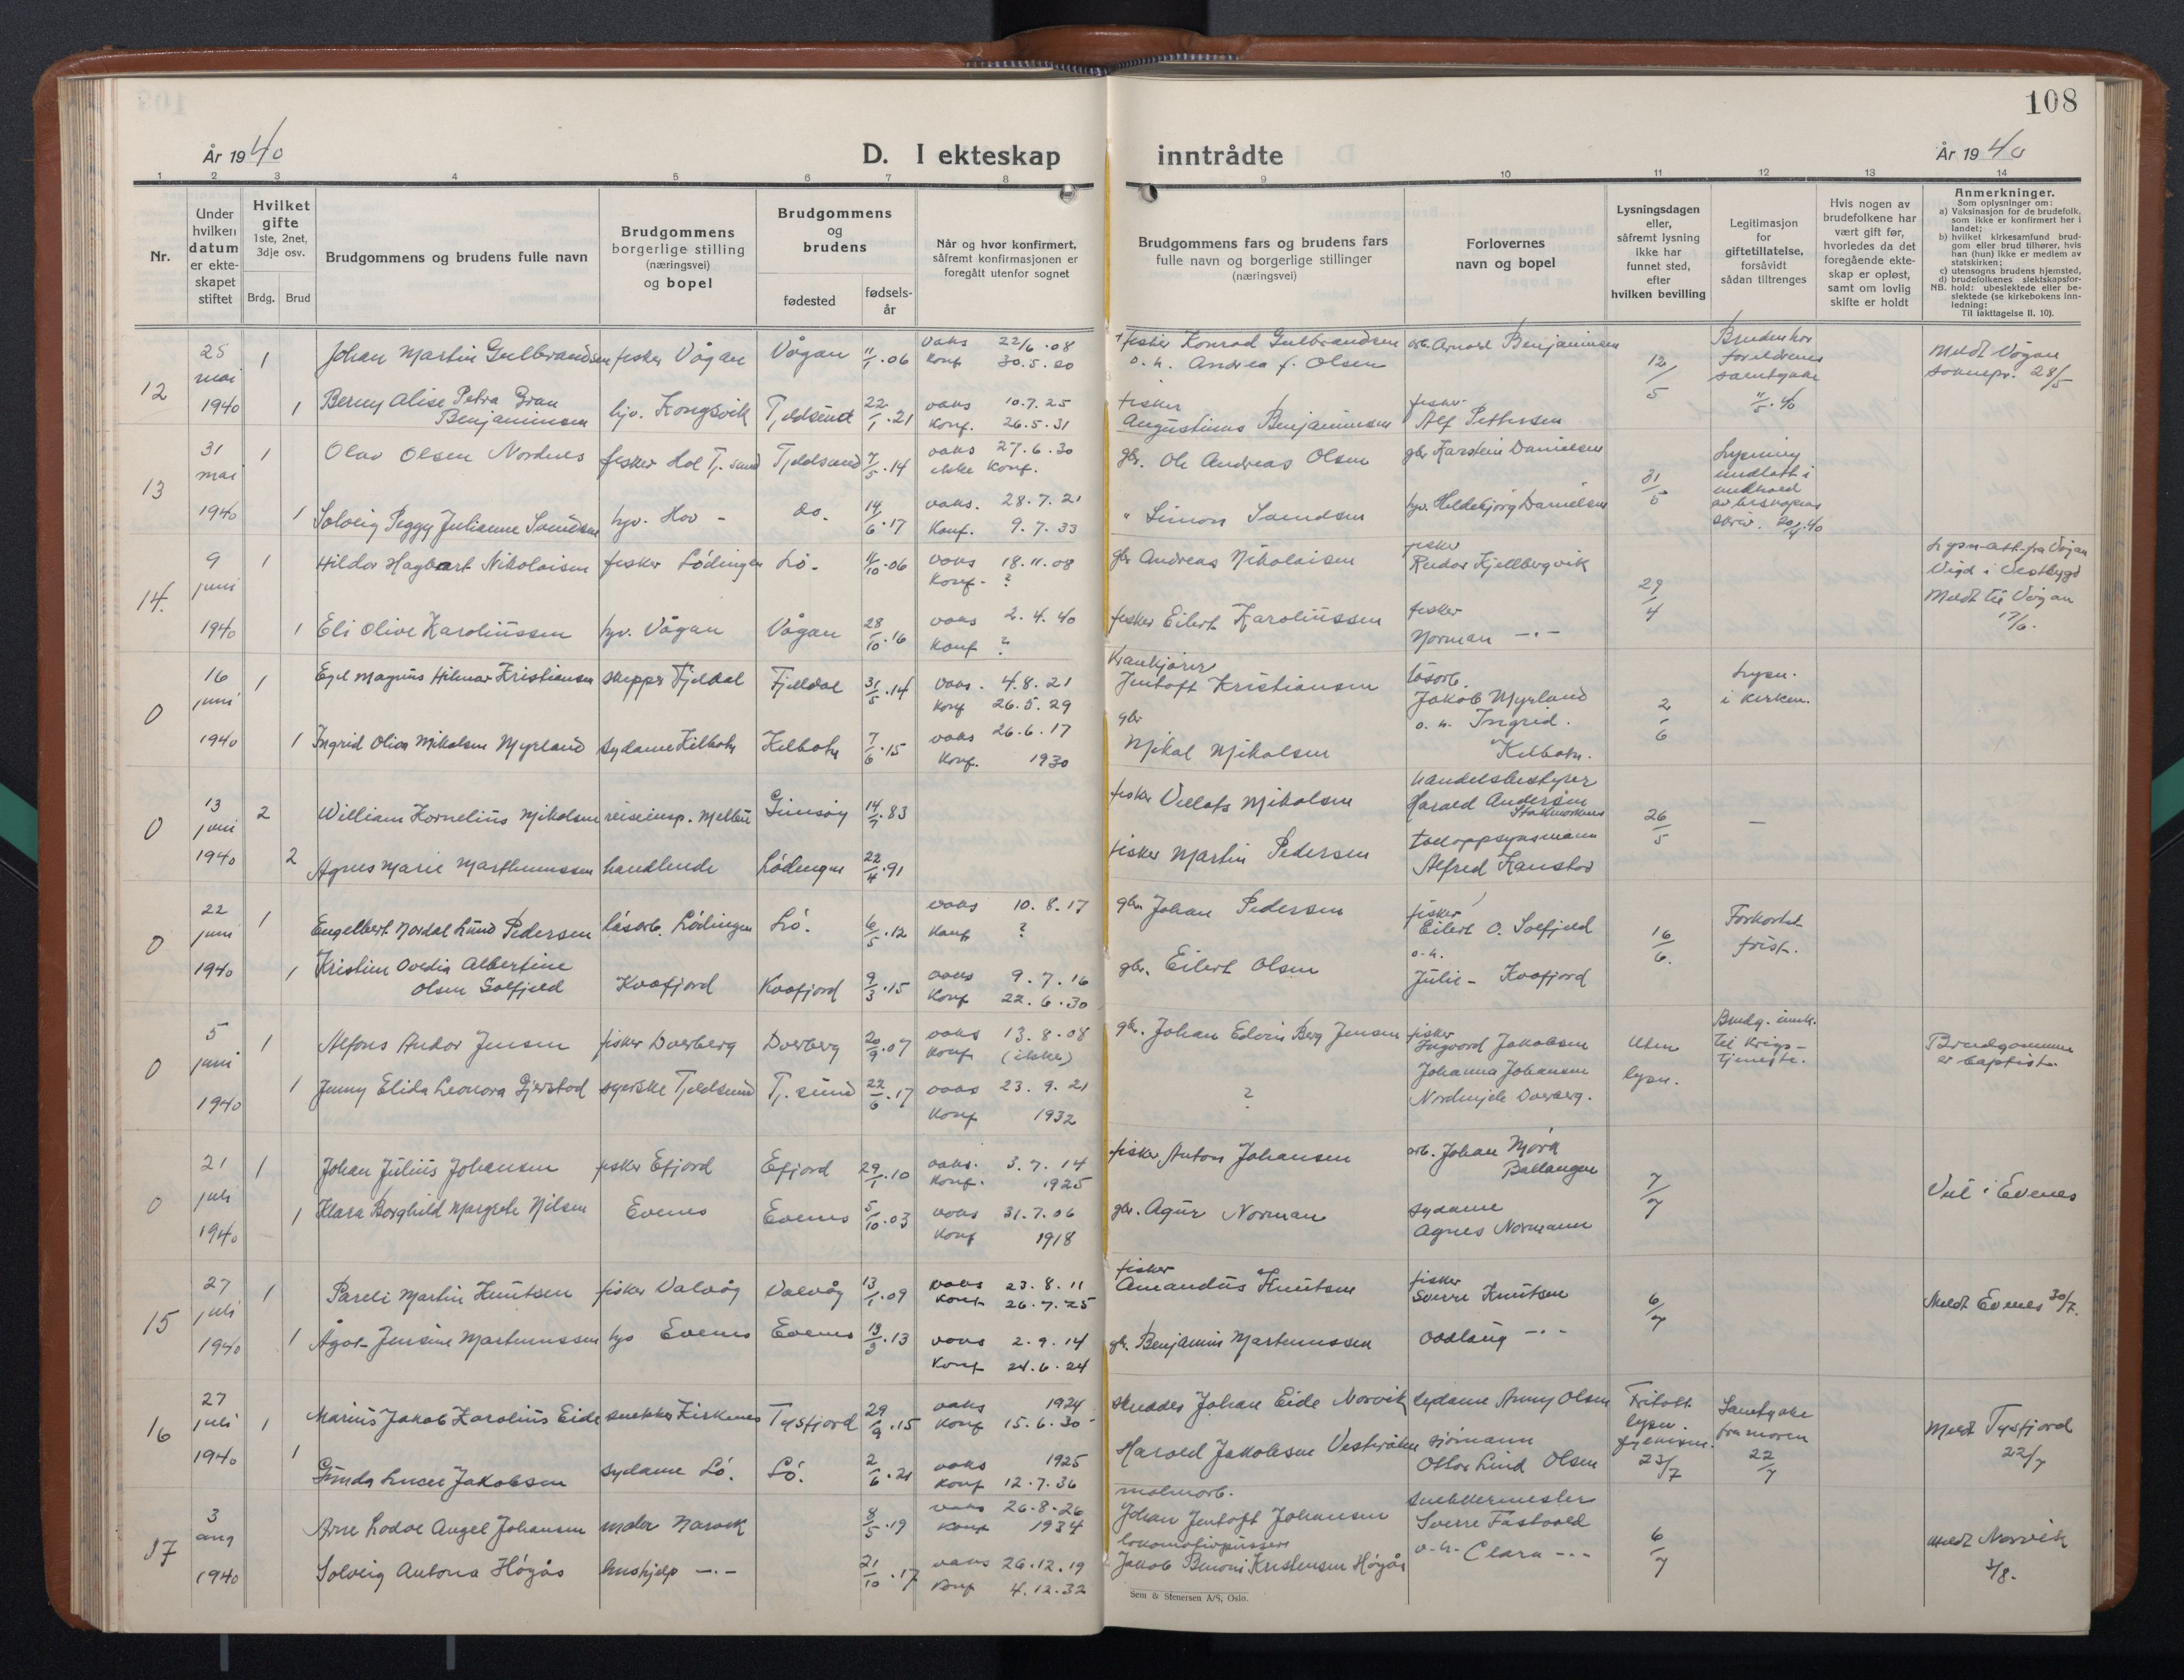 108
År 1940
D. I ekteskap inntrådte
År 1940
1 2 3 4 5 6 7 8 9 10 11 12 13 14
Nr.
Under hvilken datum er ekteskapet stiftet
Hvilket gifte
1ste, 2net, 3dje osv.
Brdg. Brud
Brudgommens og brudens fulle navn
Brudgommens borgerlige stilling (næringsvei) og bopel
Brudgommens og brudens
fødested
fødsels-år
Når og hvor konfirmert, såfremt konfirmasjonen er foregått utenfor sognet
Brudgommens fars og brudens fars fulle navn og borgerlige stillinger (næringsvei)
Forlovernes navn og bopel
Lysningsdagen eller, såfremt lysning ikke har funnet sted, efter hvilken bevilling
Legitimasjon for giftetillatelse, forsåvidt sådan tiltrenges
Hvis nogen av brudefolkene har vært gift før, hvorledes da det foregående ekteskap er opløst, samt om lovlig skifte er holdt
Anmerkninger.
Som oplysninger om:
a) Vaksinasjon for de brudefolk, som ikke er konfirmert her i landet;
b) hvilket kirkesamfund brudgom eller brud tilhører, hvis han (hun) ikke er medlem av statskirken;
c) utensogns brudens hjemsted,
d) brudefolkenes slektskapsforhold: ubeslektede eller beslektede (se kirkebokens innledning:
NB.
Til iakttagelse II. 10).
12 25 mai 1940
1 Johan Martin Gulbrandsen fisker Vågan Vågan 11/1.06 vaks 22/6.08 konf 30.5.20
† fisker Konrad Gulbrandsen o. h. Andrea f. Olsen
arb. Arnold Benjaminsen
12/5
Bruden har foreldrenes samtykke 11/5.40
Meldt Vågan soknepr. 28/5
1 Berny Alise Petra Gran Benjaminsen hjv. Kongsvik Tjeldsund 22/1.21 vaks 10.7.25 Konf. 26.5.31
fisker Augustinus Benjaminsen
fisker Alf Pettersen
13 31 mai 1940
1 Olav Olsen Nordnes fisker Hol Tj.sund Tjeldsund 7/5.14 vaks 27.6.30 ikke Konf.
gbr. Ole Andreas Olsen
gbr Karstein Danielsen
31/5
Lysning undlatt i av bispens skriv. 20/4.40
1 Solveig Peggy Julianne Simonsen hjv. Hov - do. 14/6.17 vaks. 28.7.21 Konf. 9.7.33
" Simon
hjv. Hildebjørg Danielsen
14. 9 juni 1940
1 Hildor Hagbart Nikolaisen fisker Lødingen Lø. 11/10.06 vaks 18.11.08 konf. ?
gbr Andreas Nikolaisen
fisker Reidar Kjellbergvik
29/4
Lysn.att. fra Vågan Vigd i Vestbygd Meldt til Vågan 17/6.
1 Eli Olive Karoliussen hjv. Vågan Vågan 28/10.16 vaks 2.4.40 Konf ?
fisker Eilert Karoliussen
fisker Norman -"-
0 16 juni 1940
1 Egil Magnus Hilmar Kristiansen skipper Fjeldal Fjelldal 31/5.14 vaks. 4.8.21 konf 26.5.29
Krankjører Jentoft Kristiansen
løsarb. Jakob Myrland o. h. Ingrid. Kilbotn.
2/6
Lysn. i kirken.
1 Ingrid Olia Mikalsen Myrland sydame Kilbotn Kilbotn 7/6.15 vaks 26.6.17 Konf. 1930
gbr Mikal Mikalsen
0 13 juni 1940
2 William Kornelius Mikalsen reiseinsp. Melbu Gimsøy 14/7.83
fisker Mikalsen
handelsbestyrer Harald Andersen Stokmarknes
26/5
—
2 Agnes Marie Marthinussen handlende Lødingen 22/4.91
fisker Martin Pedersen
tolloppsynsmann Alfred Kanstad
0 22 juni 1940
1 Engelbert Nordal Lund Pedersen løsarb. Lødingen Lø. 6/5.12 vaks 10.8.17 Konf ?
gbr Johan Pedersen
fisker Eilert O. Solfjeld o. h. Julie - Kvæfjord
16/6.
Forkortet frist.
1 Kristine Ovedia Albertine Olsen Solfjeld Kvæfjord Kvæfjord 9/3.15 vaks 9.7.16 Konf 22.6.30
gbr. Eilert Olsen
0 5 juni 1940
1 Alfons Andor Jensen fisker Dverberg Dverberg 20/9.07 vaks 13.8.08 Konf (ikke)
gbr. Johan Edvin Berg Jensen
fisker Ingvard Jakobsen Johanna Johansen Nordmjele Dverberg.
Uten lysn.
Brudg. innk. til krigstjeneste.
Brudgommen er baptist.
1 Jenny Elida Leonora Gjerstad syerske Tjeldsund Tj.sund 22/6.17 vaks 23.9.21 Konf 1932
?
0 21 juli 1940
1 Johan Julius Johansen fisker Efjord Efjord 29/1.10 vaks. 3.7.14 Konf. 1925
fisker Anton Johansen
arb. Johan Mørk Ballangen
7/7
Viet i Evenes
1 Klara Borghild Margrete Nilsen Evenes Evenes 5/10.03 vaks 31.7.06 Konf 1918
gbr. Agur Norman
sydame Agnes Normann
15 27 juli 1940
1 Pareli Martin Knutsen fisker Valvåg Valvåg 13/1.09 vaks 23.8.11 konf 26.7.25
fisker Amandus Knutsen
fisker Sverre Knutsen
6/7
Meldt Evenes 30/7.
1 Ågot Jensine Martinussen hjv Evenes Evenes 13/3.13 vaks 2.9.14 Konf 24.6.24
gbr. Benjamin Martinussen
Oddlaug -"-
16 27 juli 1940
1 Marius Jakob Karolius Eide snekker Kirkenes Tysfjord 29/9.15 vaks 1924 Konf 15.6.30
skredder Johan Eide Narvik
sydame Anny Olsen
Fritatt lysn. fylkesm. 23/7
Samtykke fra moren 22/7
Meldt Tysfjord 22/7
1 Gunda Lucie Jakobsen sydame Lø. Lø. 2/6.21 vaks 1925 Konf 12.7.36
Harald Jakobsen
sjømann Ottar Lind Olsen
17 3 aug 1940
Arne Lodve Angel Johansen maler Narvik 8/5.19 vaks 26.8.26 Konf 1934
malmarb. Johan Jentoft Johansen
snekkermester Sverre Fastvold o. h. Clara -"-
6/7
meldt Narvik 3/8.
Solveig Antona Høgås hushjelp -"- 21/10.17 vaks 26.12.19 Konf 4.12.32
lokomotivpusser Jakob Benoni Kristensen Høgås
Sem & Stenersen A/S, Oslo.